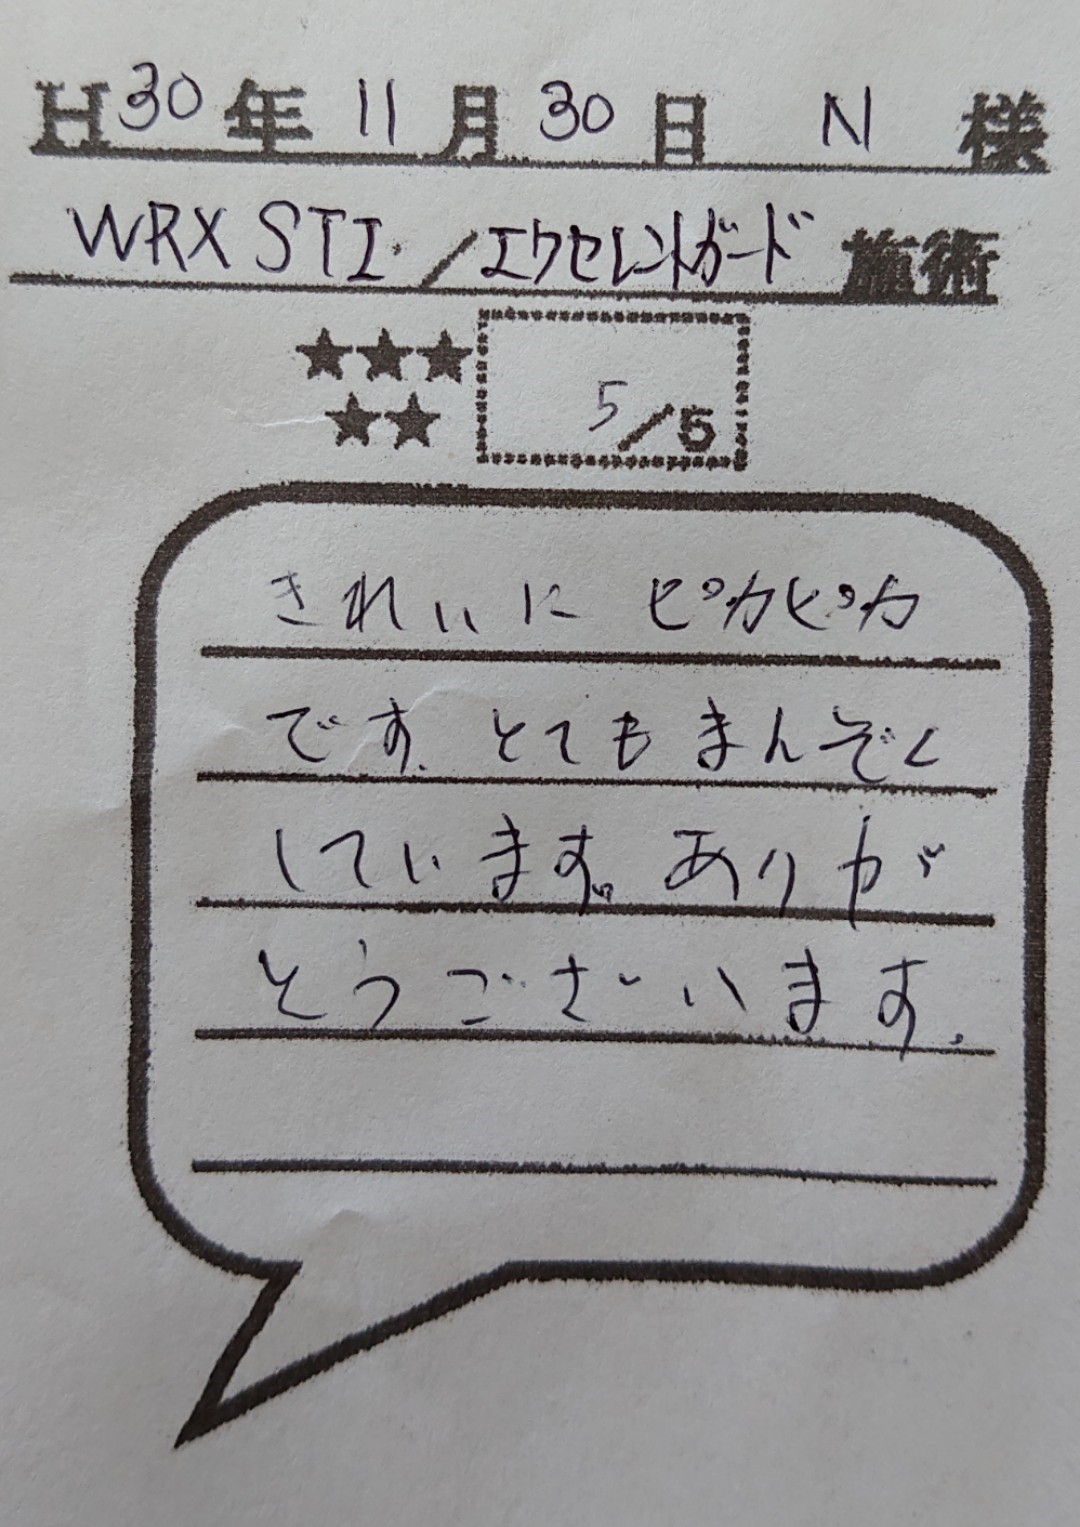 H30年11月30日 N 様
WRX STI. /エクセレントガード 施術
★★★
★★
5/5
きれいに ピカピカ
です. とても まんぞく
しています。ありが
とうございます.